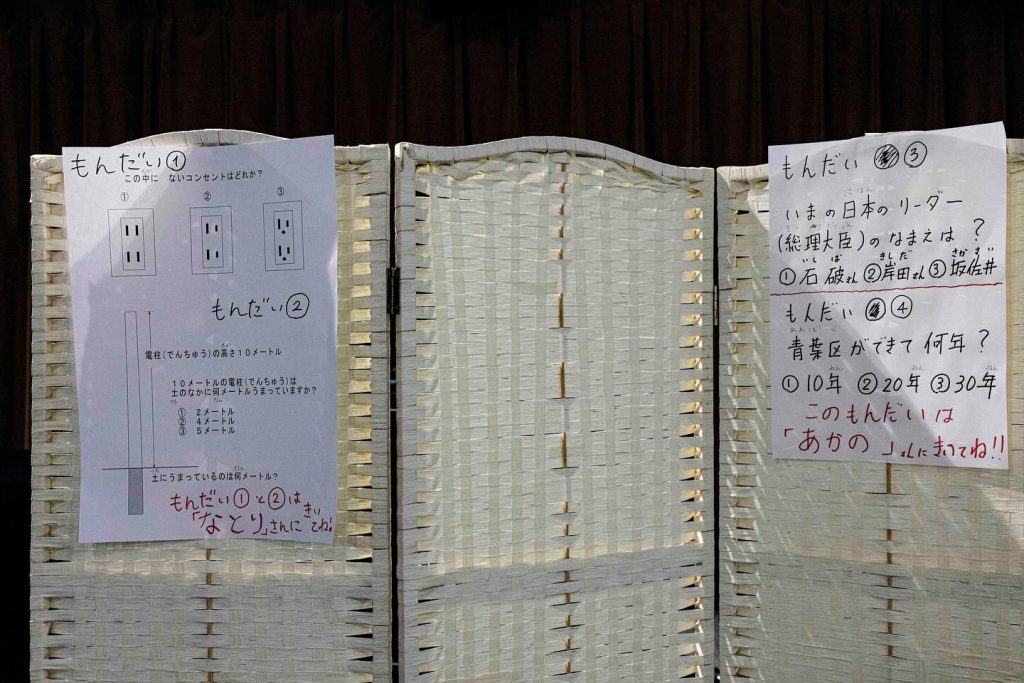 もんだい①
この中に ないコンセントはどれか？
① ② ③
もんだい②
電柱(でんちゅう)の高さ10メートル
10メートルの電柱(でんちゅう)は
土のなかに何メートルうまっていますか？
① 2メートル
② 4メートル
③ 5メートル
土にうまっているのは何メートル？
もんだい①と②は
「なとり」さんにきいてね!
もんだい ③
いまの日本のリーダー
(総理大臣)のなまえは？
①石破さん ②岸田さん ③坂佐井
もんだい ④
青葉区ができて何年？
①10年 ②20年 ③30年
このもんだいは
「あかの 」さんにきいてね!!